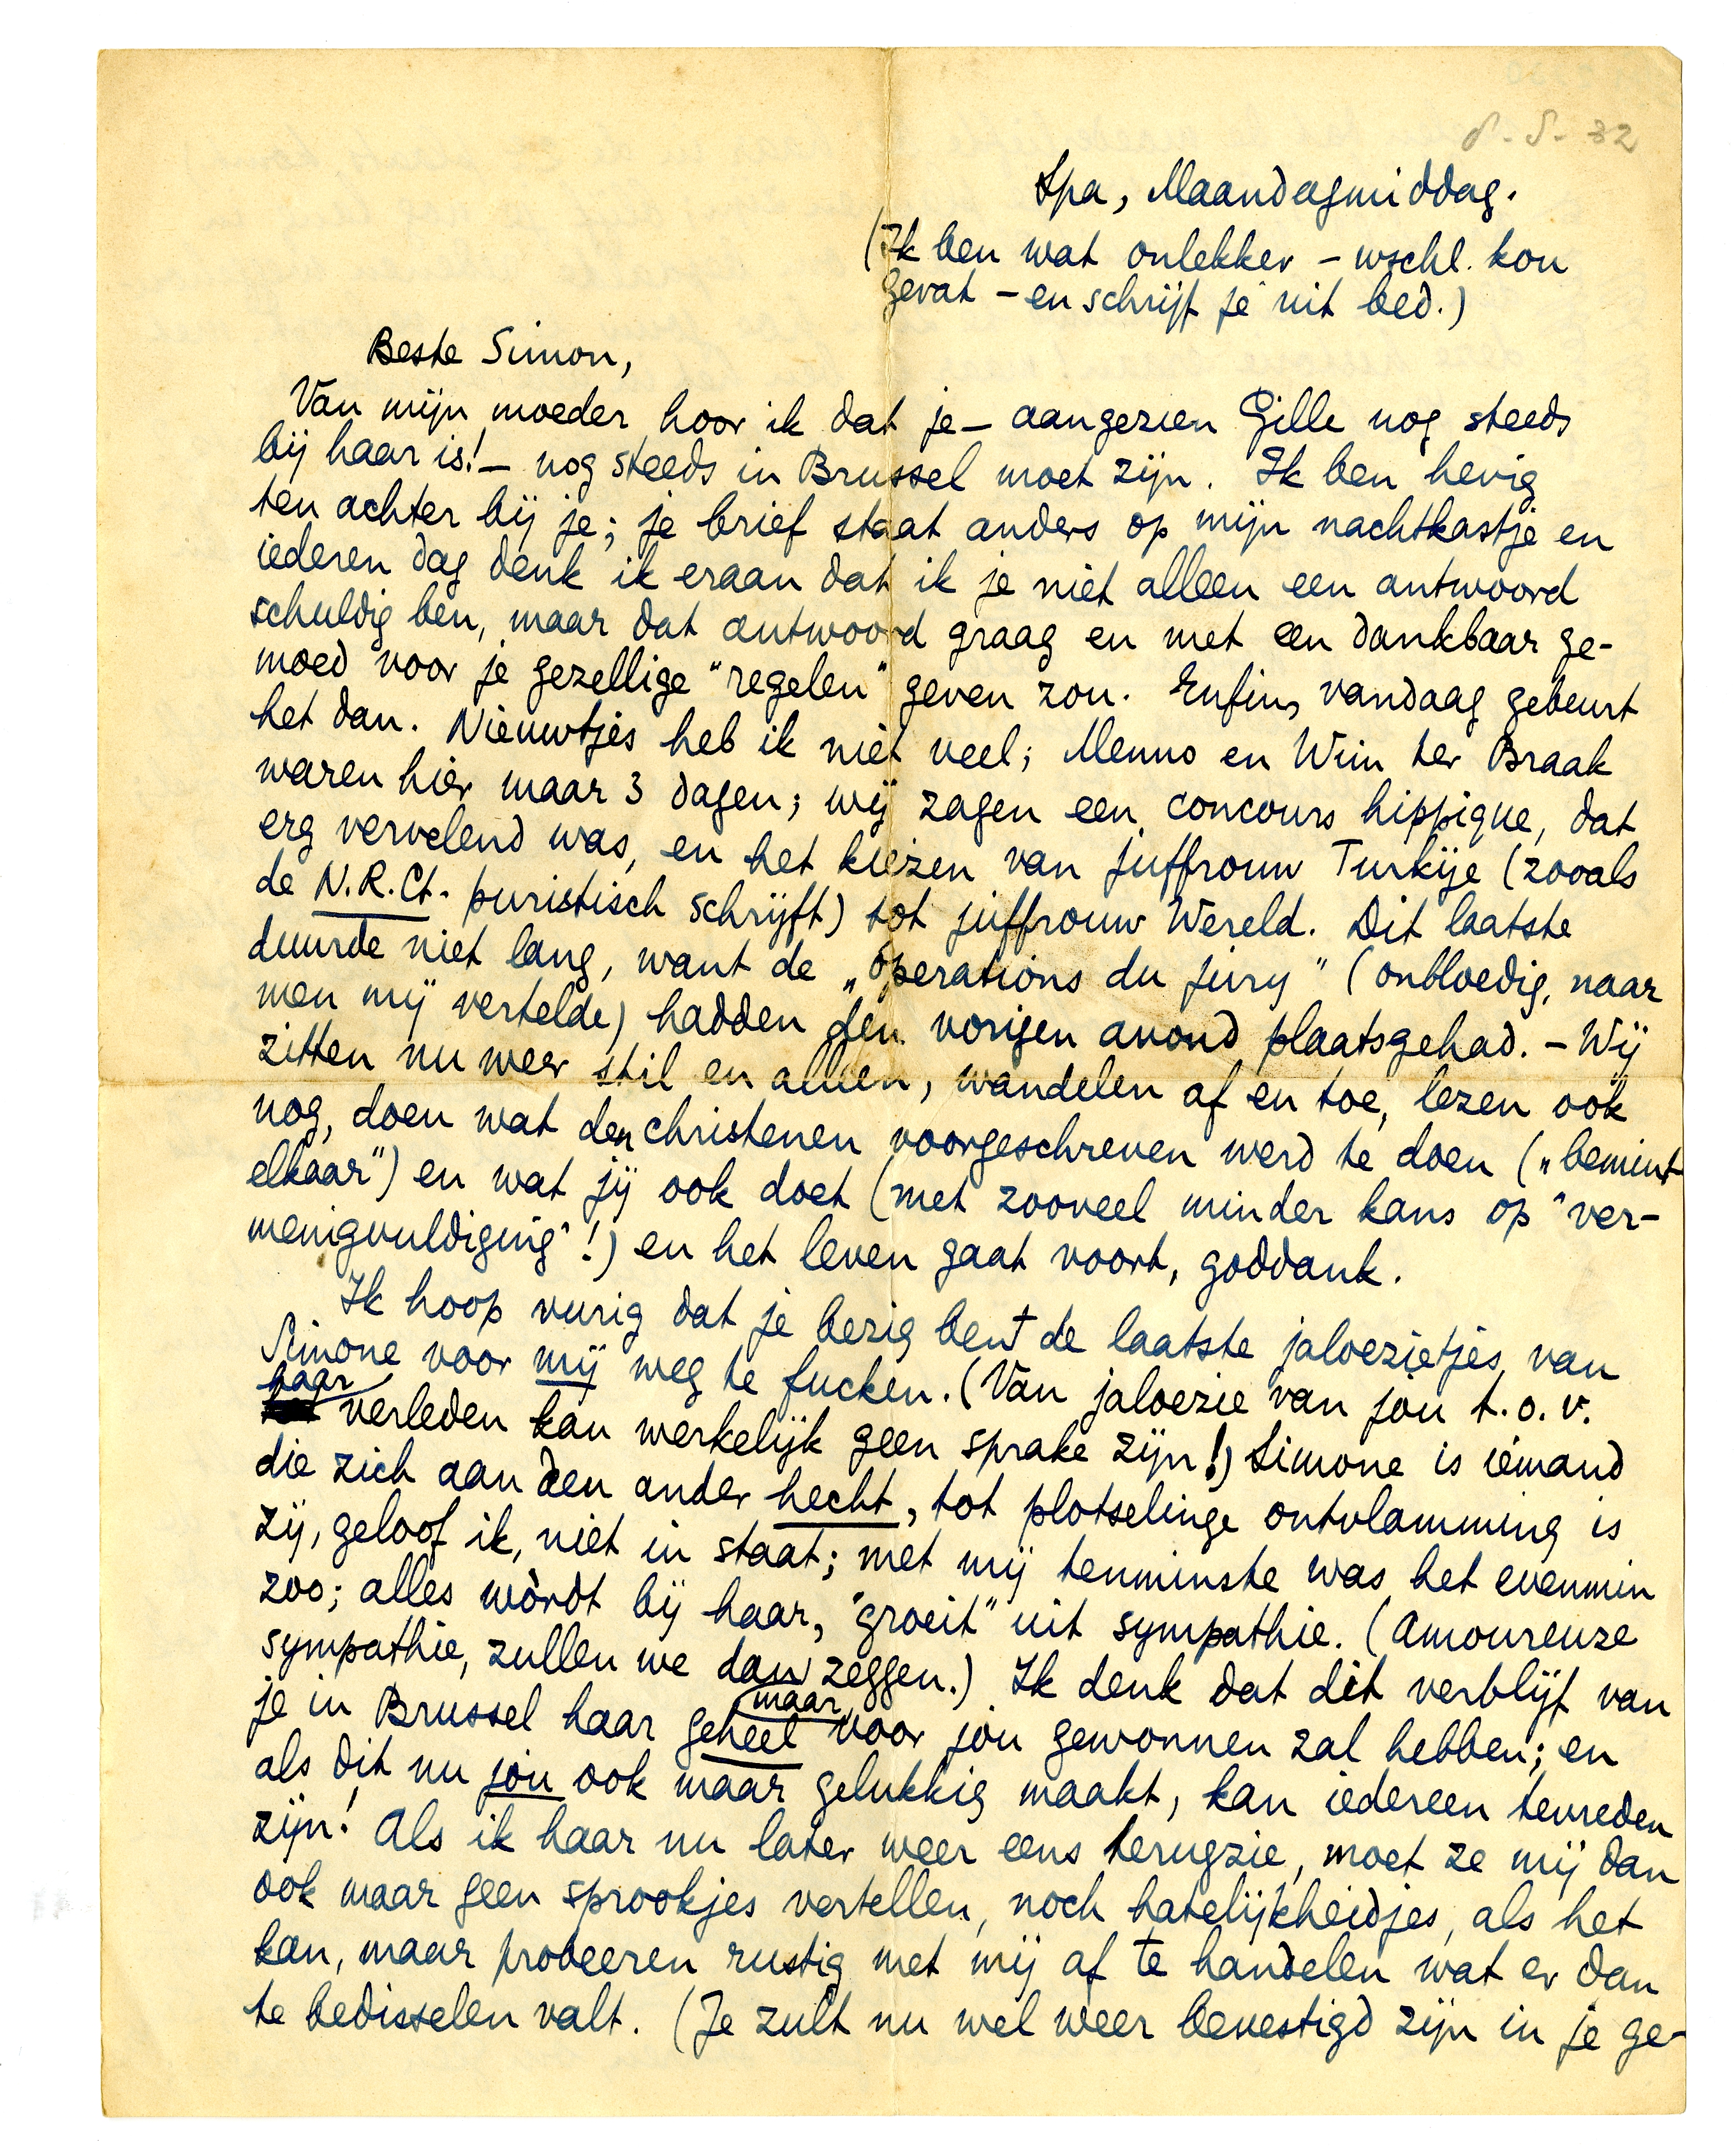 8-8-32
Spa, Maandagmiddag.
(Ik ben wat onlekker – wschl. kou
gevat – en schrijf je uit bed.)
Beste Simon,
Van mijn moeder hoor ik dat je – aangezien Gille nog steeds
bij haar is! – nog steeds in Brussel moet zijn. Ik ben hevig
ten achter bij je; je brief staat anders op mijn nachtkastje en
iederen dag denk ik eraan dat ik je niet alleen een antwoord
schuldig ben, maar dat antwoord graag en met een dankbaar ge-
moed voor je gezellige "regelen" geven zou. Enfin, vandaag gebeurt
het dan. Nieuwtjes heb ik niet veel; Menno en Wim ter Braak
waren hier maar 3 dagen; wij zagen een concours hippique, dat
erg vervelend was, en het kiezen van juffrouw Turkije (zooals
de N.R.Ct. puristisch schrijft) tot juffrouw Wereld. Dit laatste
duurde niet lang, want de „opérations du jury" (onbloedig, naar
men mij vertelde) hadden den vorigen avond plaatsgehad. – Wij
zitten nu weer stil en alleen, wandelen af en toe, lezen ook
nog, doen wat den christenen voorgeschreven werd te doen („bemint
elkaar") en wat jij ook doet (met zooveel minder kans op "ver-
menigvuldiging"!) en het leven gaat voort, goddank.
Ik hoop vurig dat je bezig bent de laatste jaloezietjes van
Simone voor mij weg te fucken. (Van jaloezie van jou t.o.v.
haar verleden kan werkelijk geen sprake zijn!) Simone is iemand
die zich aan den ander hecht, tot plotselinge ontvlamming is
zij, geloof ik, niet in staat; met mij tenminste was het evenmin
zoo; alles wòrdt bij haar, "groeit" uit sympathie. (Amoureuze
sympathie, zullen we dan zeggen.) Ik denk dat dit verblijf van
je in Brussel haar geheel maar voor jou gewonnen zal hebben; en
als dit nu jou ook maar gelukkig maakt, kan iedereen tevreden
zijn! Als ik haar nu later weer eens terugzie, moet ze mij dan
ook maar geen sprookjes vertellen, noch hatelijkheidjes, als het
kan, maar probeeren rustig met mij af te handelen wat er dan
te bedisselen valt. (Je zult nu wel weer bevestigd zijn in je ge-